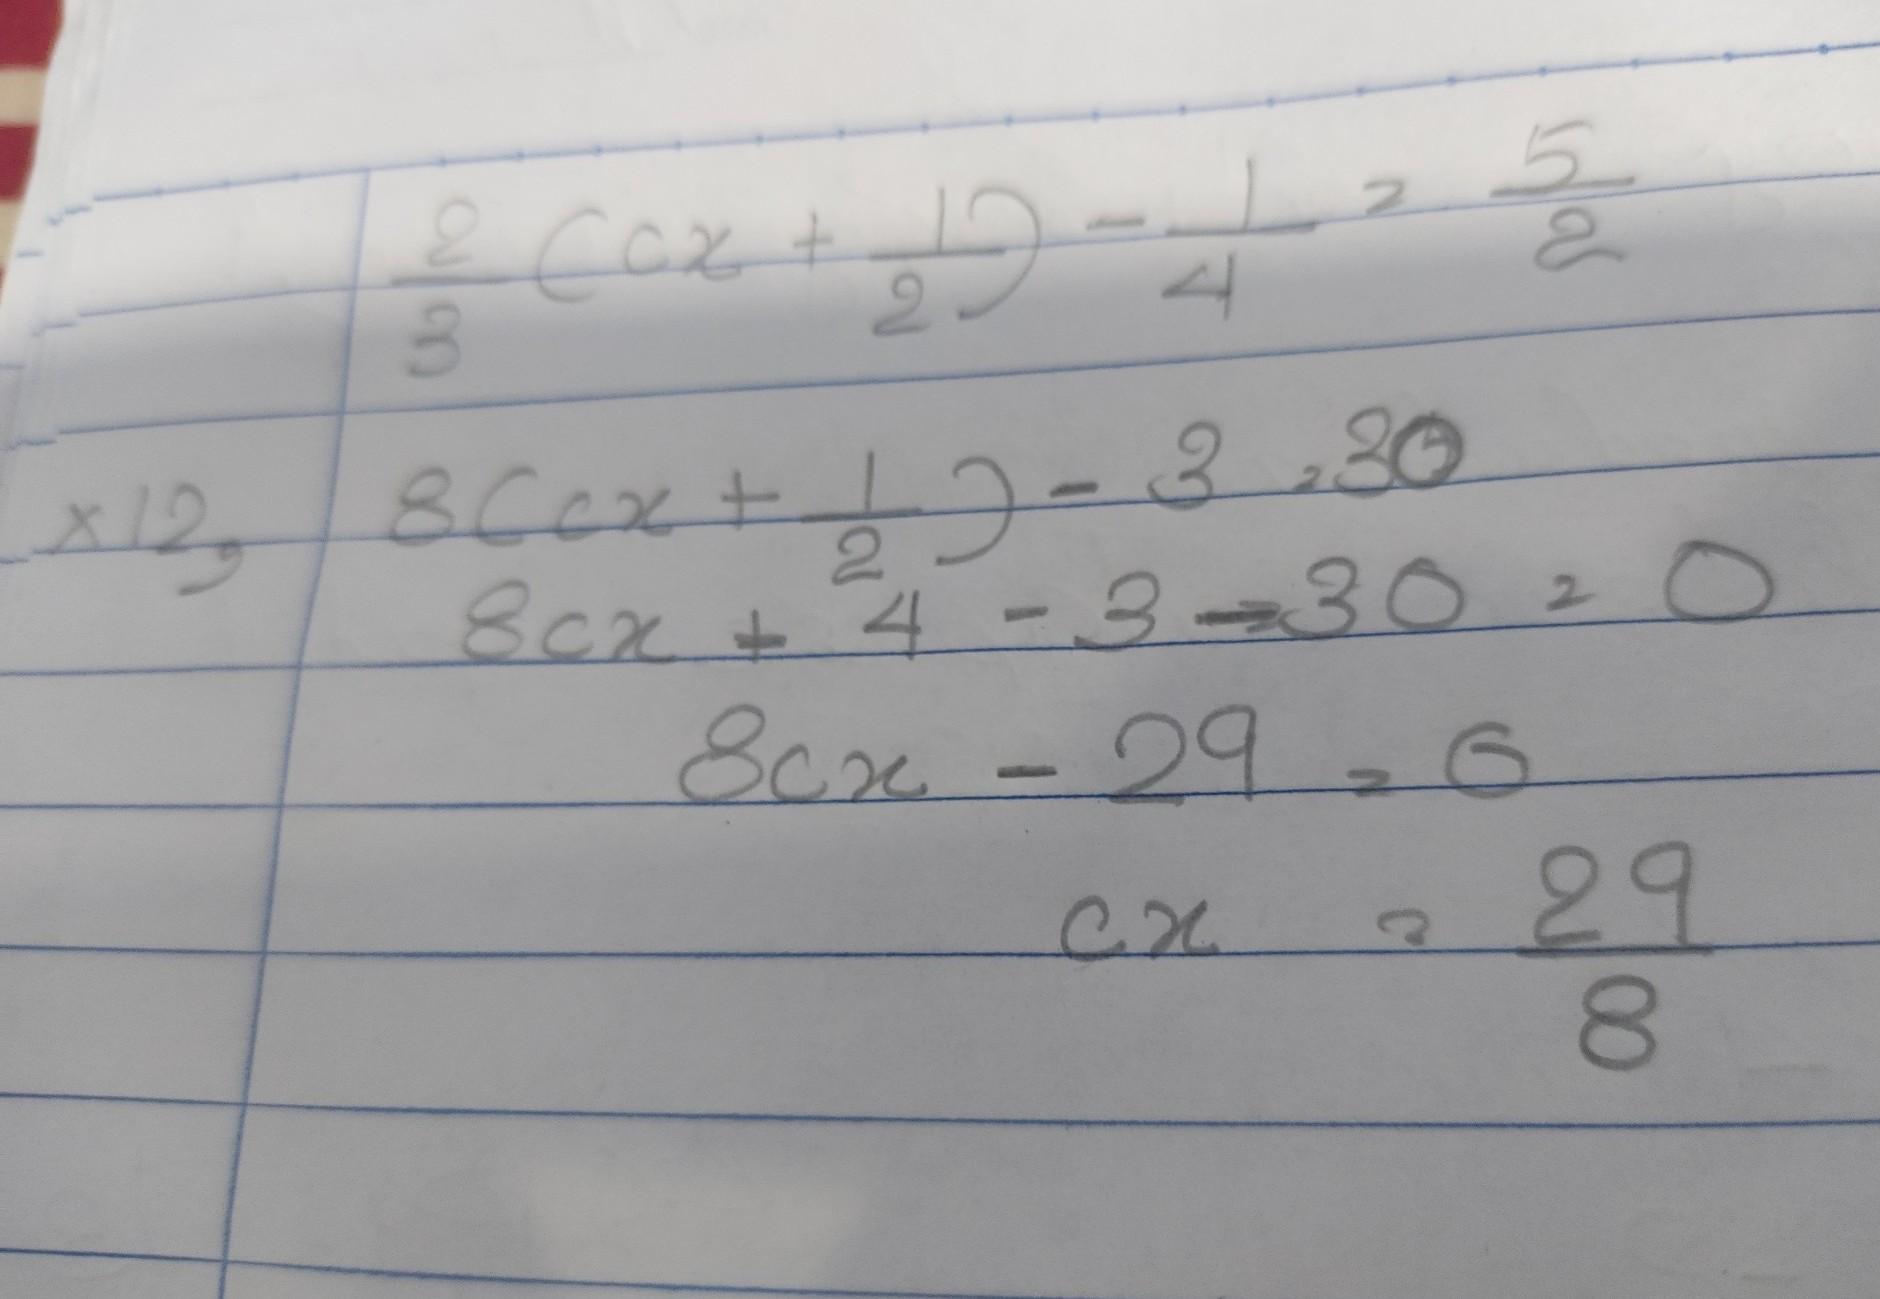 2/3 (cx + 1/2) - 1/4 = 5/2
×12, 8(cx + 1/2) - 3 = 30
8cx + 4 - 3 - 30 = 0
8cx - 29 = 0
cx = 29/8